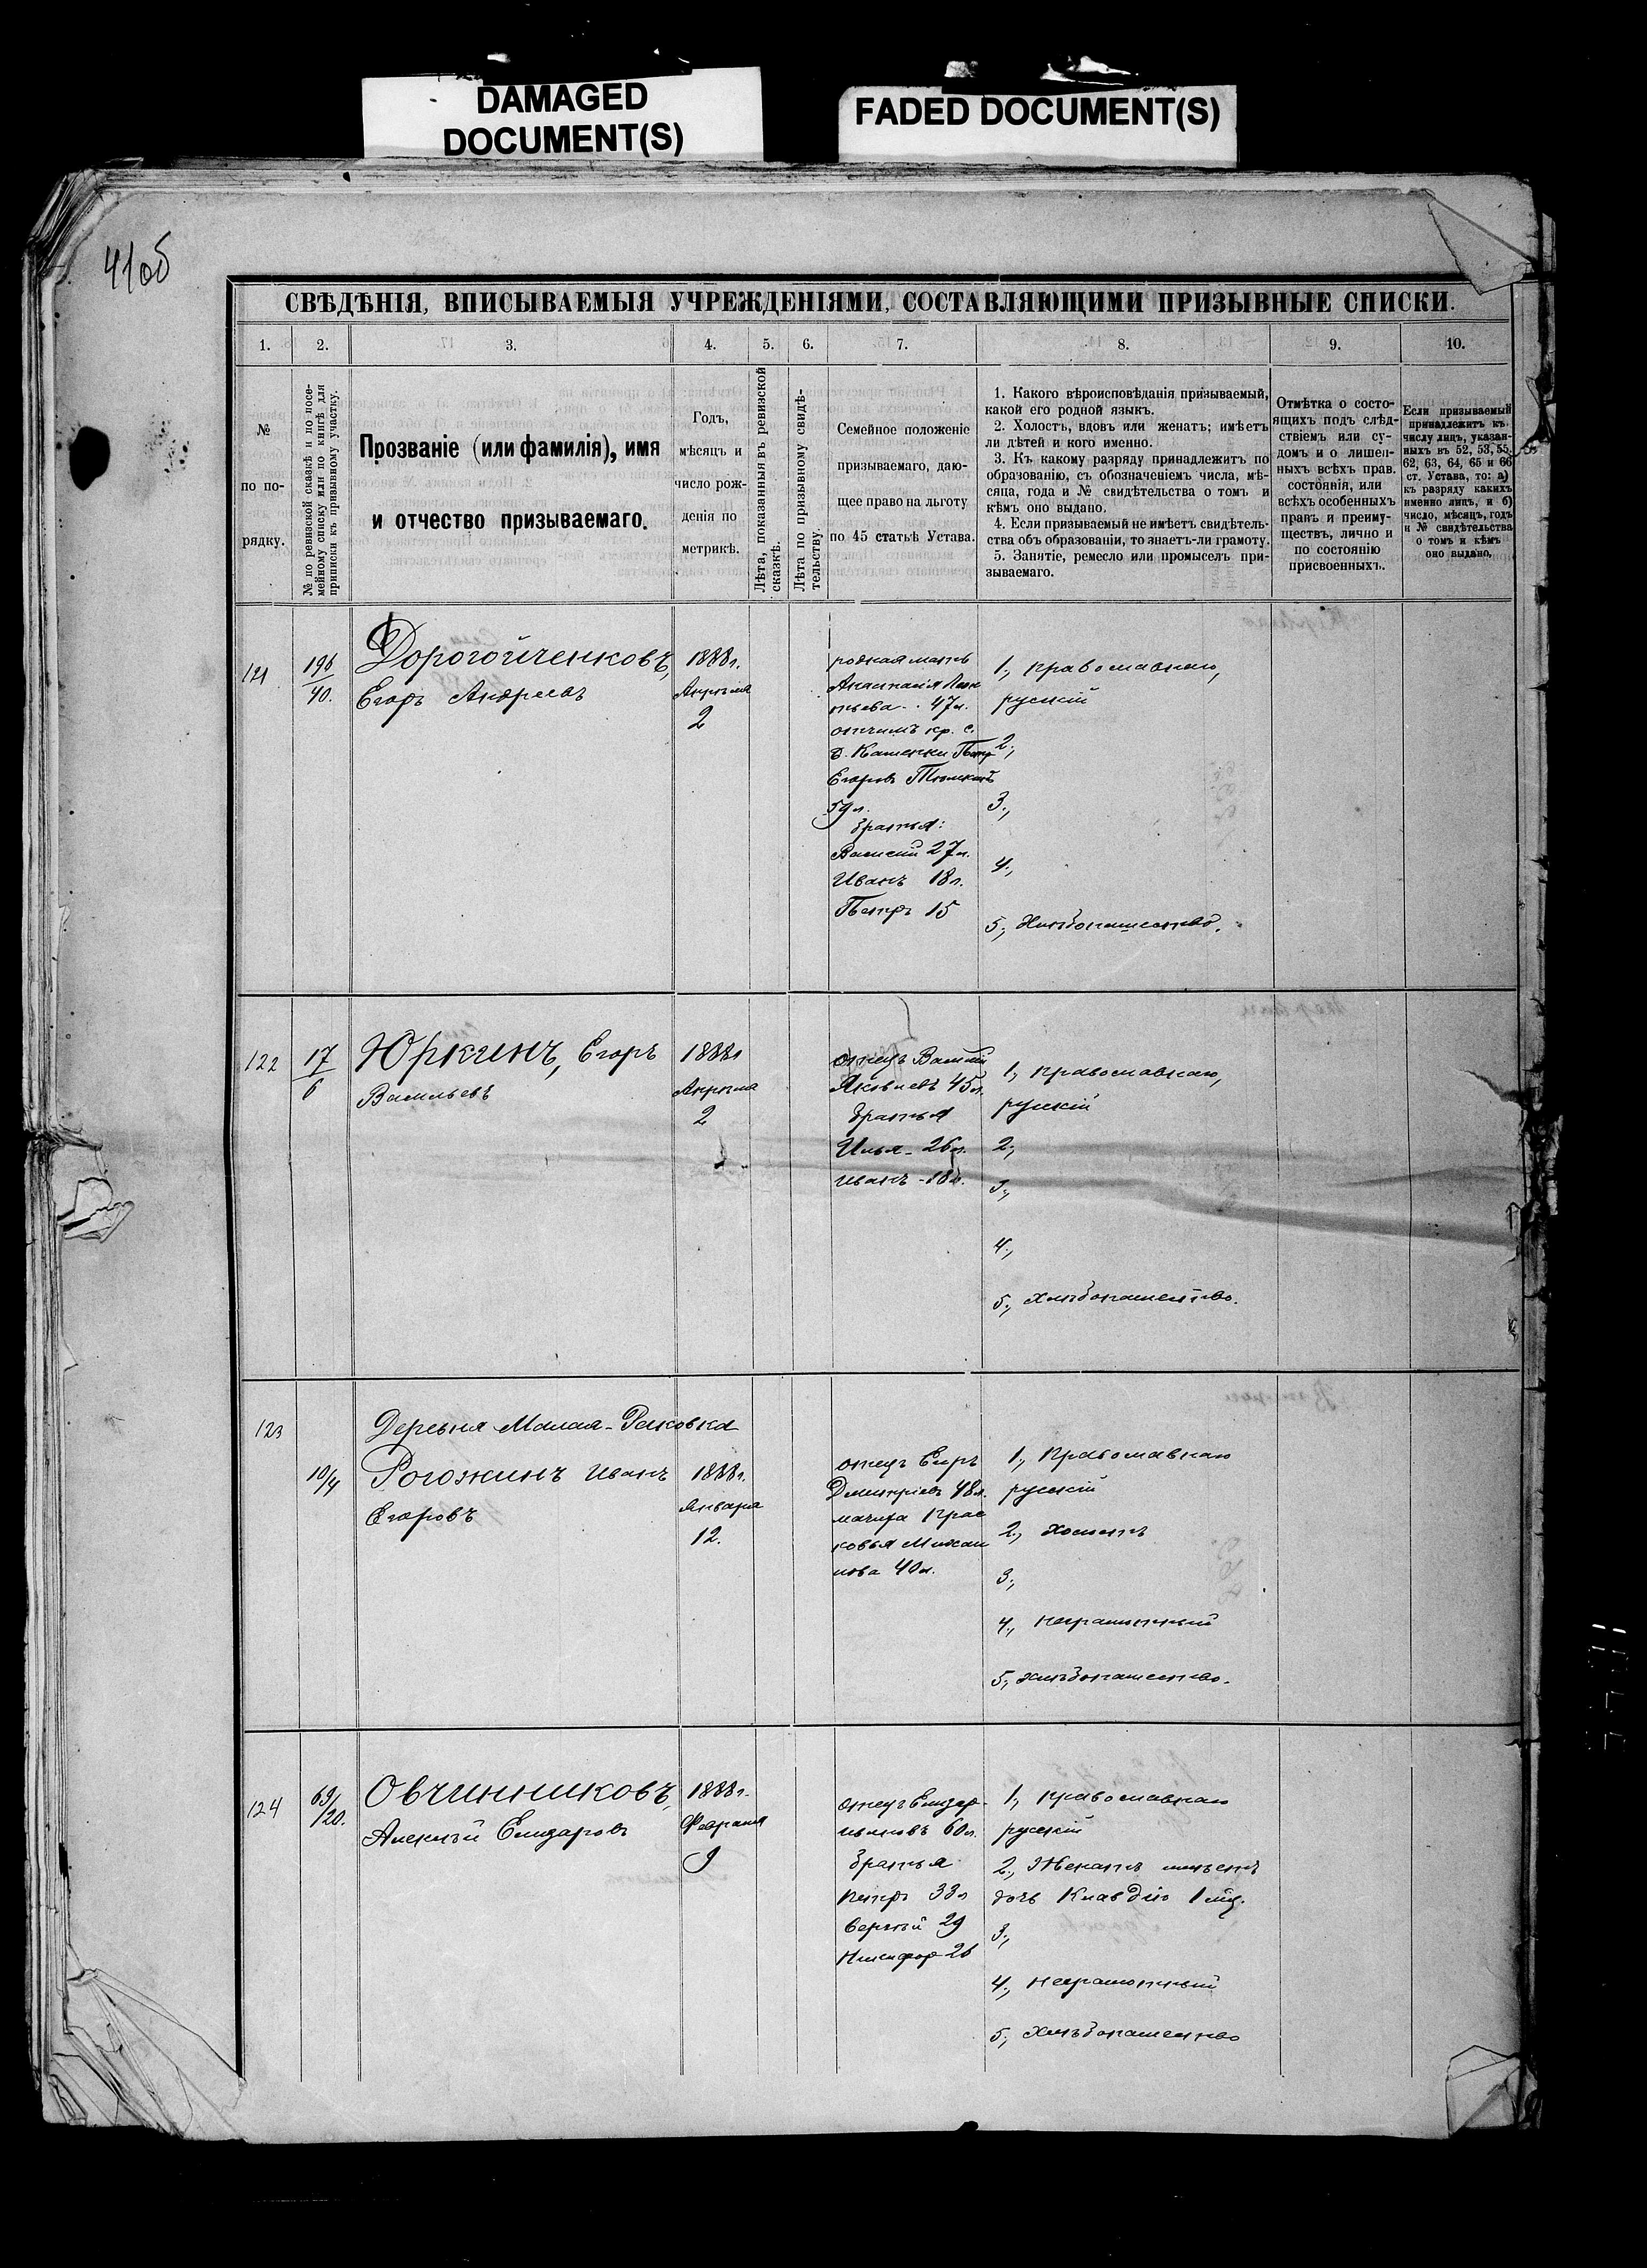 DAMAGED
DOCUMENT(S)
FADED DOCUMENT(S)
41об
СВѢДѢНІЯ, ВПИСЫВАЕМЫЯ УЧРЕЖДЕНІЯМИ, СОСТАВЛЯЮЩИМИ ПРИЗЫВНЫЕ СПИСКИ.
1. 2. 3. 4. 5. 6. 7. 8. 9. 10.
№
по по-
рядку.
№ по ревизской сказкѣ и по посе-
мейному списку или по книгѣ для
приписки къ призывному участку.
Прозваніе (или фамилія), имя
и отчество призываемаго.
Годъ,
мѣсяцъ и
число рож-
денія по
метрикѣ.
Лѣта, показанныя въ ревизской
сказкѣ.
Лѣта по призывному свидѣ-
тельству.
Семейное положеніе
призываемаго, даю-
щее право на льготу
по 45 статьѣ Устава.
1. Какого вѣроисповѣданія призываемый,
какой его родной языкъ.
2. Холостъ, вдовъ или женатъ; имѣетъ
ли дѣтей и кого именно.
3. Къ какому разряду принадлежитъ по
образованію, съ обозначеніемъ числа, мѣ-
сяца, года и № свидѣтельства о томъ и
кѣмъ оно выдано.
4. Если призываемый не имѣетъ свидѣтель-
ства объ образованіи, то знаетъ-ли грамоту.
5. Занятіе, ремесло или промыселъ при-
зываемаго.
Отмѣтка о состо-
ящихъ подъ слѣд-
ствіемъ или су-
домъ и о лишен-
ныхъ всѣхъ прав.
состоянія, или
всѣхъ особенныхъ
правъ и преиму-
ществъ, лично и
по состоянію
присвоенныхъ.
Если призываемый
принадлежитъ къ
числу лицъ, указан-
ныхъ въ 52, 53, 55,
62, 63, 64, 65 и 66
ст. Устава, то: а)
къ разряду какихъ
именно лицъ, и б)
число, мѣсяцъ, годъ
и № свидѣтельства
о томъ и кѣмъ
оно выдано.
121
196
40.
Дорогойченковъ,
Егоръ Андреевъ
1888г.
Апрѣля
2
родная мать
Анастасія Леон
тьева. . 47л.
отчимъ кр. с.
д. Каменки Петр
Егоровъ
59л.
братья:
Василій 27л.
Иванъ 18л.
Петръ 15
1., православнаго,
русскій
2.,
3.,
4.,
5., Хлѣбопашество.
122
17
6
Юркинъ, Егоръ
Васильевъ
1888г
Апрѣля
2
отецъ Василій
Яковлевъ 45л.
братья
Илья - 26л.
Иванъ - 18л.
1., православнаго,
русскій
2.,
3.,
4.,
5., Хлѣбопашество.
123
Деревня Малая-Раковка
10/4
Рогожинъ Иванъ
Егоровъ
1888г.
Января
12.
отецъ Егоръ
Дмитріевъ 48л.
мачиха Прас
ковья Михаи
лова 40л.
1., Православнаго
русскій
2., Холостъ
3.,
4., неграмотный
5., Хлѣбопашество.
124
69/
/20.
Овчинниковъ,
Алексѣй Елизаровъ
1888г.
Февраля
9
отецъ Елизар
60л.
братья
Петръ 33л
Сергѣй 29
Никифор 26
1., Православнаго
русскій
2., Женатъ имѣетъ
дочь Клавдію 1 мѣс.
3.,
4., неграмотный
5., Хлѣбопашество